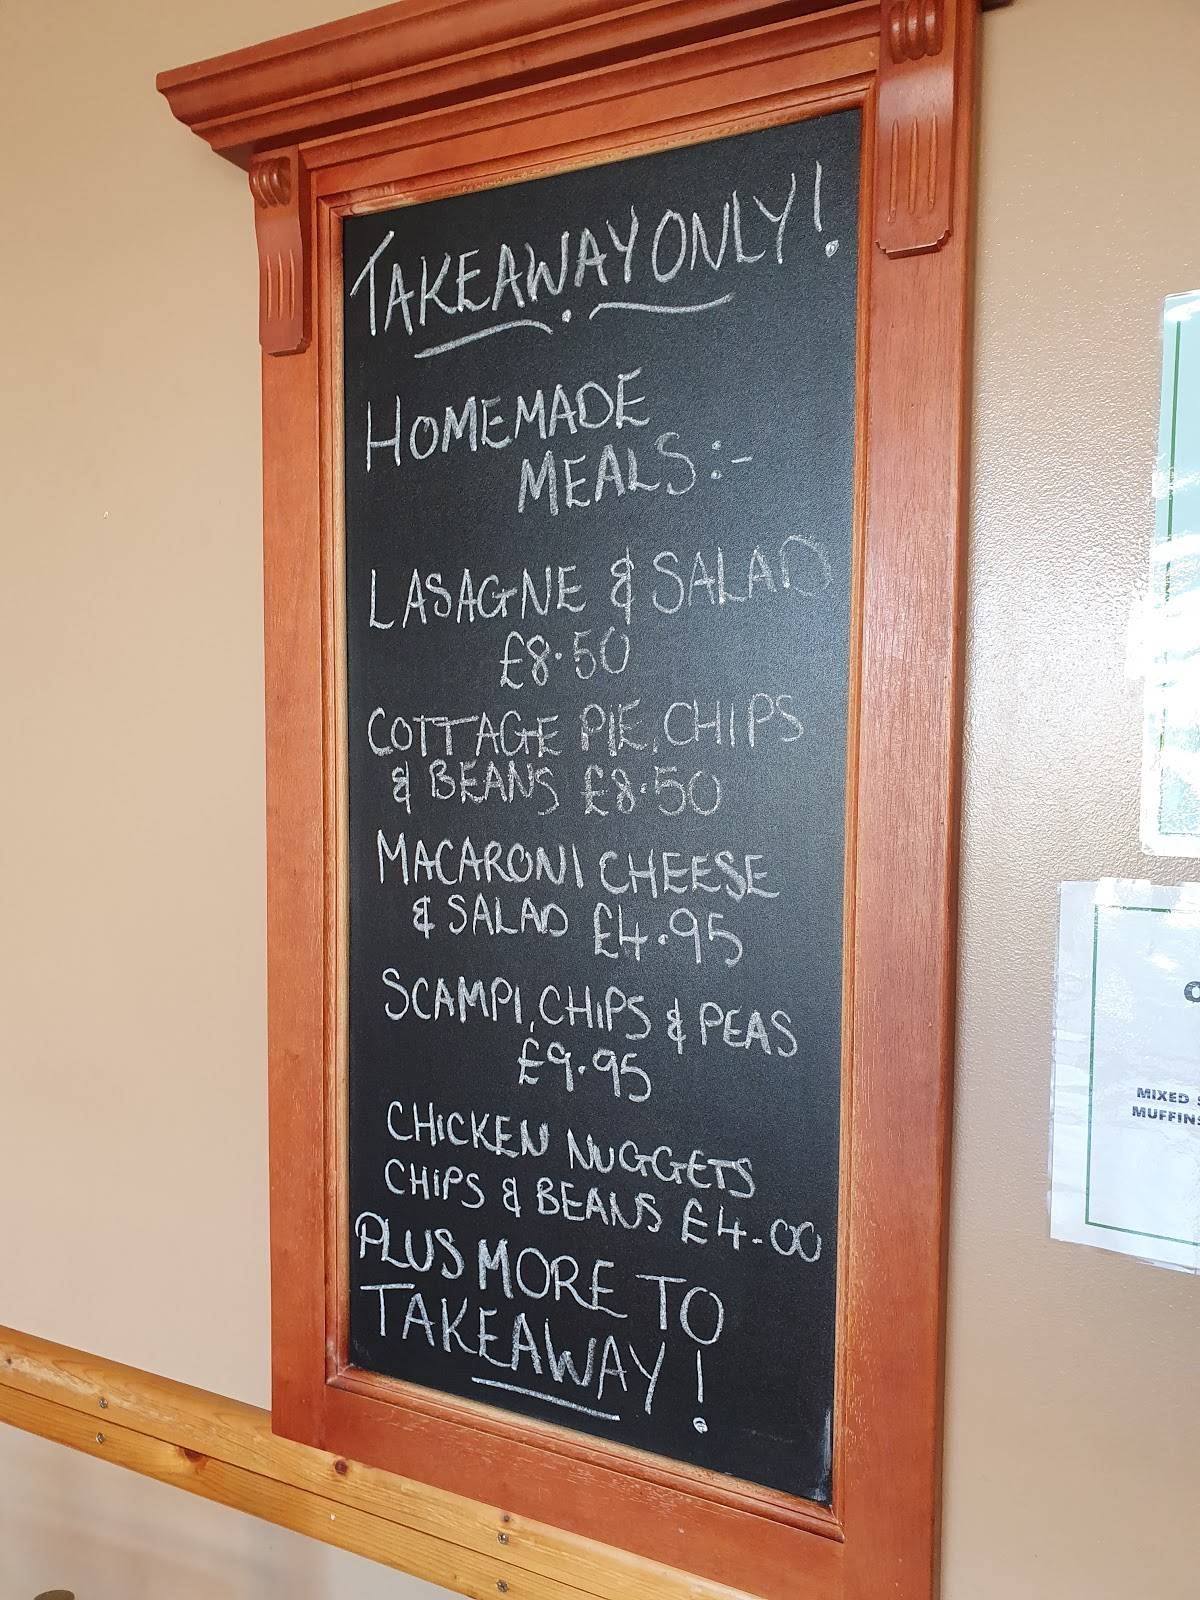 TAKEAWAY ONLY!
HOMEMADE
MEALS:-
LASAGNE & SALAD
£8.50
COTTAGE PIE, CHIPS
& BEANS £8.50
MACARONI CHEESE
& SALAD £4.95
SCAMPI, CHIPS & PEAS
£9.95
CHICKEN NUGGETS
CHIPS & BEANS £4.00
PLUS MORE TO
TAKEAWAY!
MIXED
MUFFINS